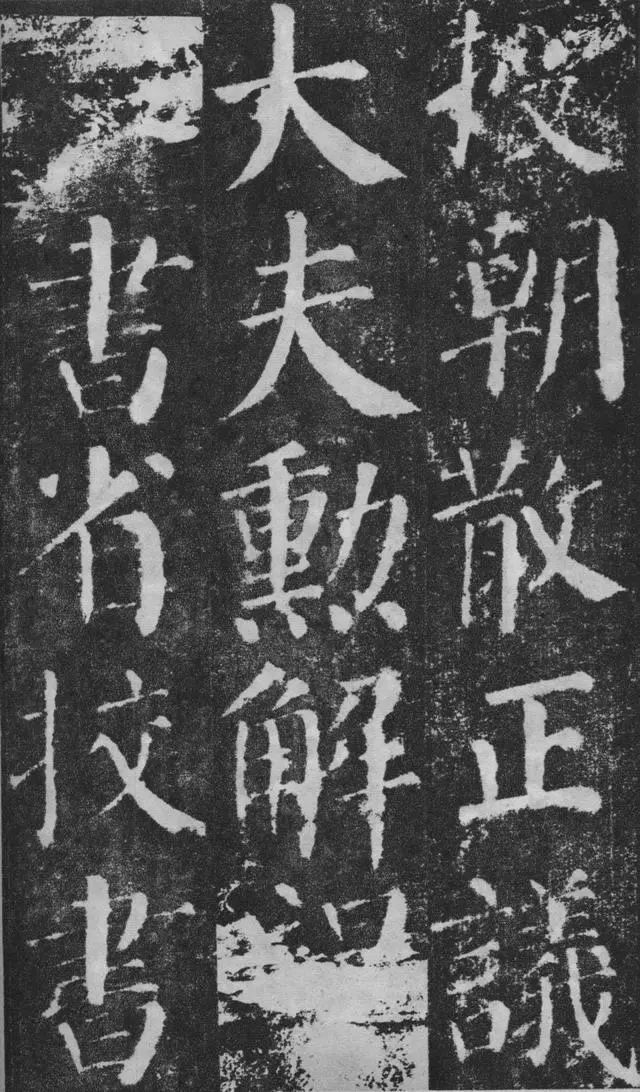 授朝散正議
大夫勳解
書省挍書